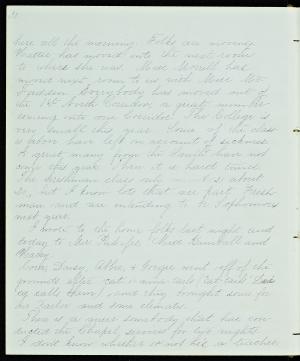 here all the morning. Folks are moving.
Hattie has moved into the next room
to where she was. Miss Morrill has
moved right room to us with Miss Mc
Fadden. Everybody has moved out of
the 1st North Corridor, a great number
coming into our Corridor. The College is
very small this year. Some of the class
above have left on account of sickness.
A great many from the South have not
come this year. Then it is hard times.
The freshman class number is about
so, but I know lots that are part Fresh
man and are intending to be Sophomores
next year.
I wrote to the home folks last night and
today to Mr. Miss and
Corin, Daisy, Abbie, & Georgie went off of the
grounds after cat o nine tails (cat tails
calls them), and they brought some for
our Parlor and some clematis.
There is a queer somebody that has con
ducted the Chapel services for two nights.
I don't know whether or not he is teacher